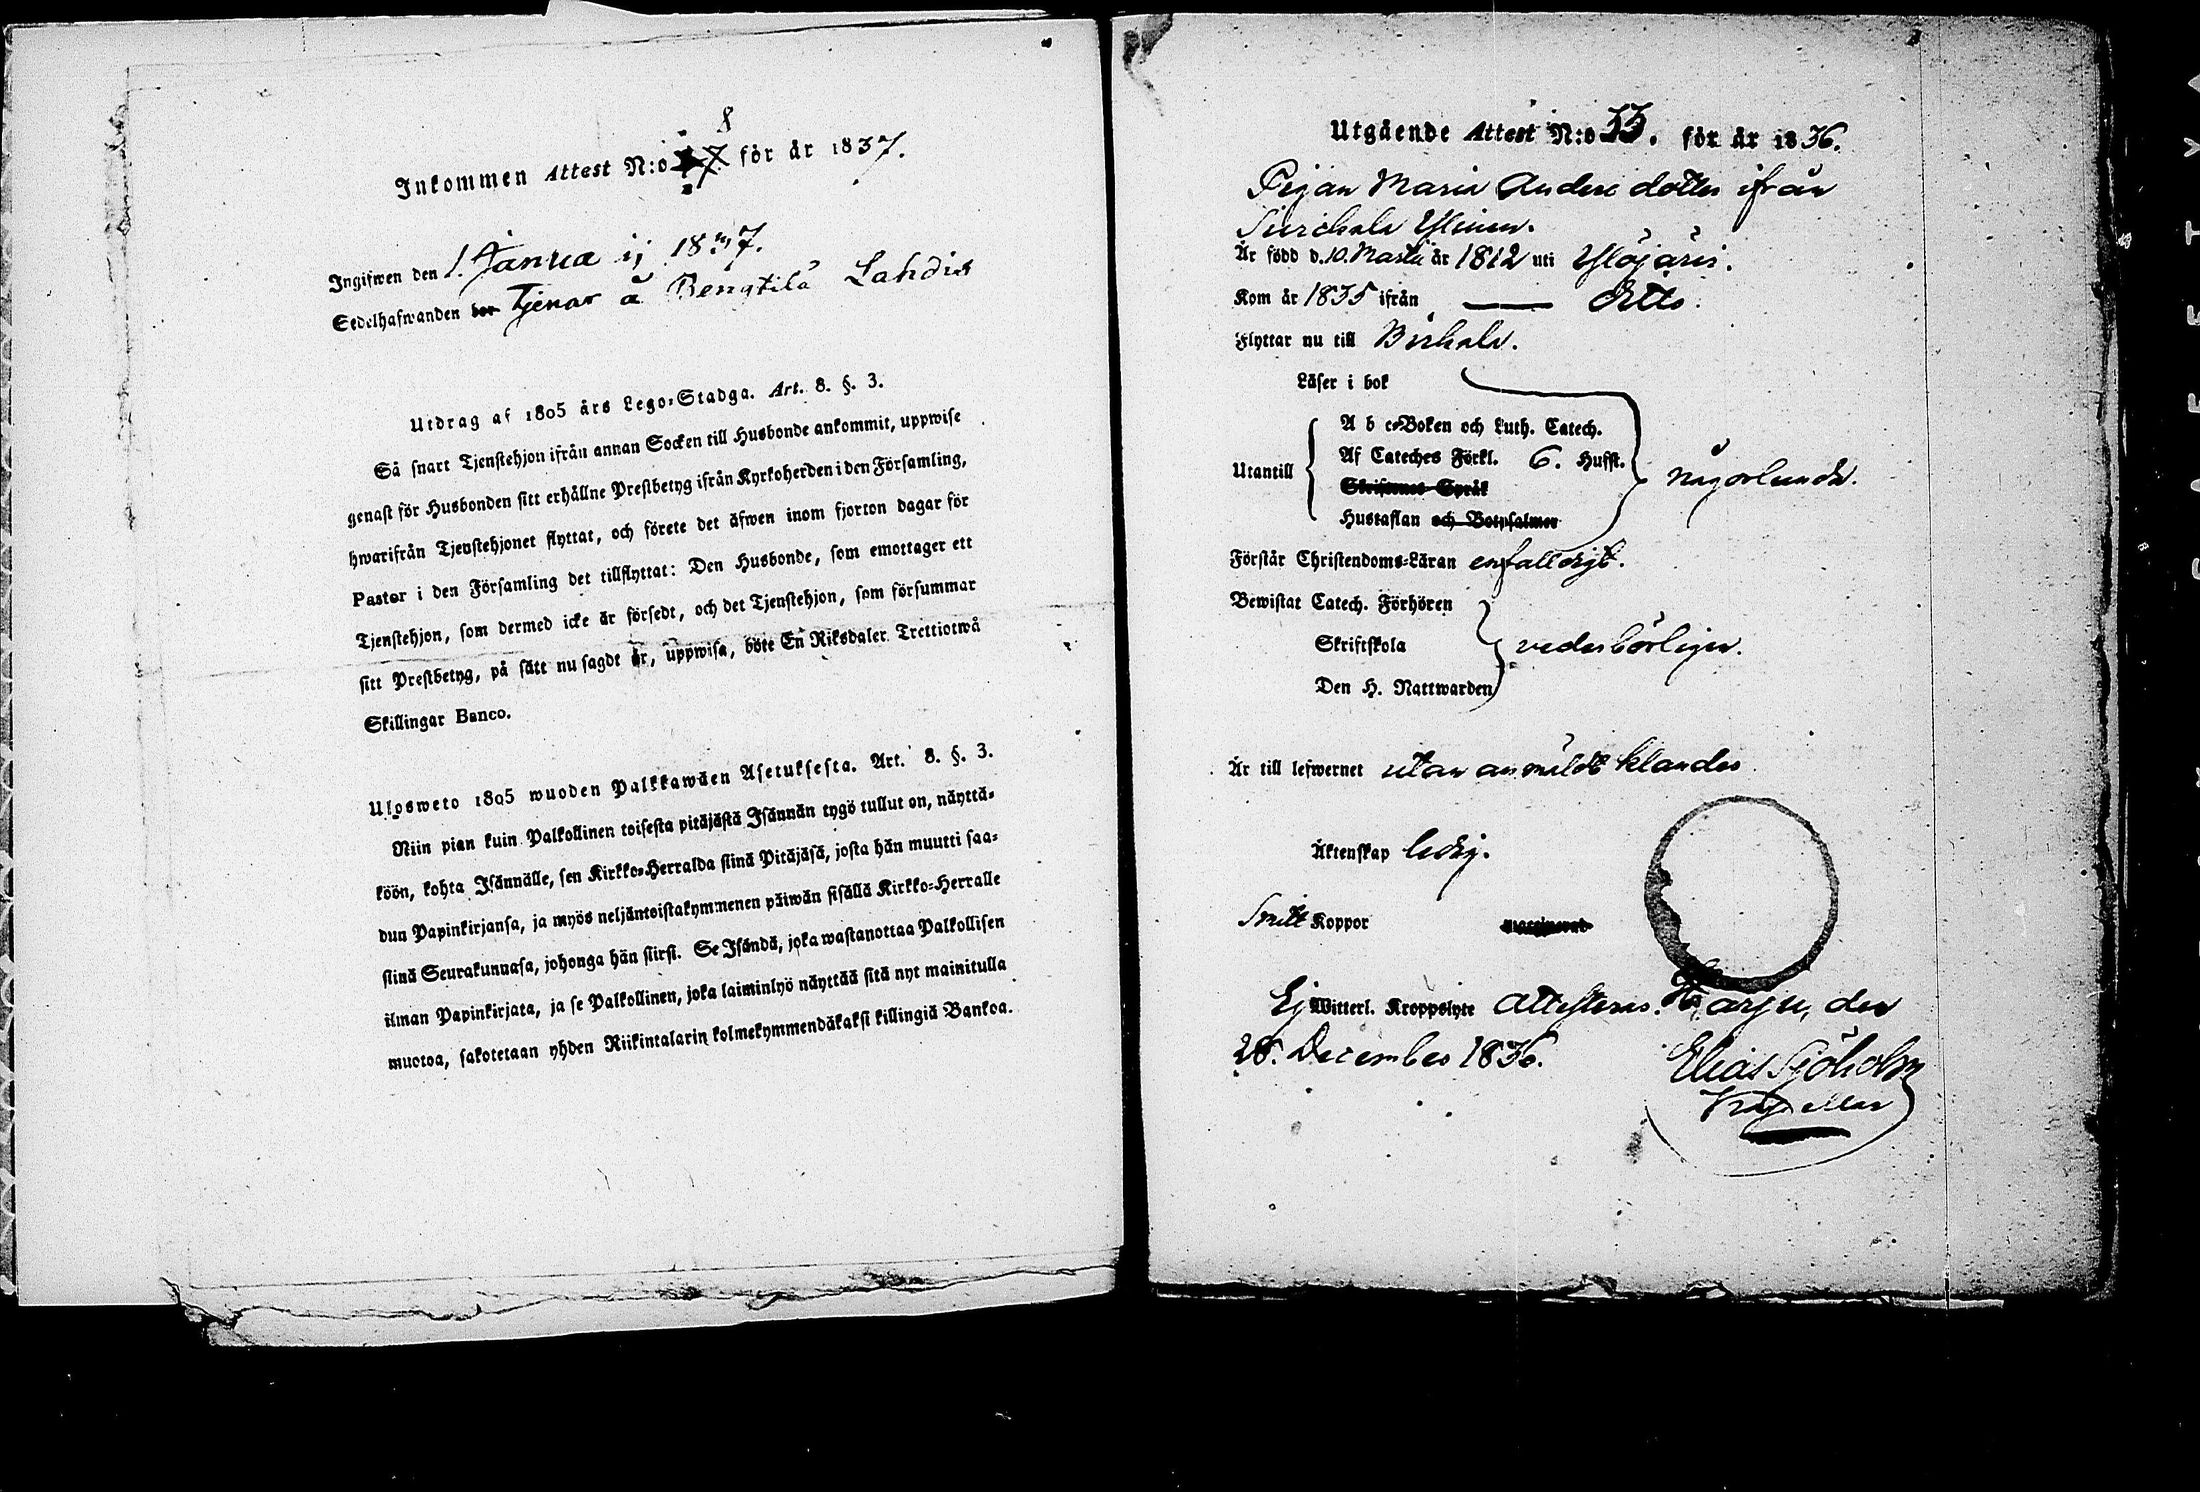 8
Inkommen Attest N:o 7 för år 1837.
Ingifwen den 1. Januarij 1837.
Sedelhafwanden bor Tjenar å Bengtilä Lahdis
Utdrag af 1805 års Lego-Stadga. Art. 8. §. 3.
Så snart Tjenstehjon ifrån annan Socken till Husbonde ankommit, uppwise
genast för Husbonden sitt erhållne Prestbetyg ifrån Kyrkoherden i den Församling,
hwarifrån Tjenstehjonet flyttat, och förete det äfwen inom fjorton dagar för
Pastor i den Församling det tillflyttat: Den Husbonde, som emottager ett
Tjenstehjon, som dermed icke är försedt, och det Tjenstehjon, som försummar
sitt Prestbetyg, på sätt nu sagdt är, uppwisa, böte En Riksdaler Trettiotwå
Skillingar Banco.
Ulosweto 1805 wuoden Palkkawäen Asetuksesta. Art. 8. §. 3.
Niin pian kuin Palkollinen toisesta pitäjästä Isännän tygö tullut on, näyttä-
köön, kohta Isännälle, sen Kirkko-Herralda siinä Pitäjäsä, josta hän muutti saa-
dun Papinkirjansa, ja myös neljäntoistakymmenen päiwän sisällä Kirkko-Herralle
siinä Seurakunnasa, johonga hän siirsi. Se Isändä, joka wastanottaa Palkollisen
ilman Papinkirjata, ja se Palkollinen, joka laiminlyö näyttää sitä nyt mainitulla
muotoa, sakotetaan yhden Riikintalarin kolmekymmendäkaksi killingiä Bankoa.
Utgående Attest N:o 33. för år 1836.
Pigan Maria Anders dotter ifrån
Siurikala Ylinen.
Är född d. 10. Martii år 1812 uti Ylöjärvi.
Kom år 1835 ifrån —— ditto.
Flyttar nu till Birkala.
Läser i bok
A b c-Boken och Luth. Catech.
Utantill Af Cateches Förkl. 6. Hufst. någorlunda.
Skriftenes Språk
Hustaflan och Botpsalmer
Förstår Christendoms-Läran enfalldigt.
Bewistat Catech. Förhören
Skriftskola vederbörligen.
Den H. Nattwarden
Är till lefwernet utan anmäldt klander
Äktenskap ledig.
Haft Koppor
Ej Witterl. Kroppslyte Attesteras. Harju, den
28. December 1836. Elias Sjöholm
Kapellan